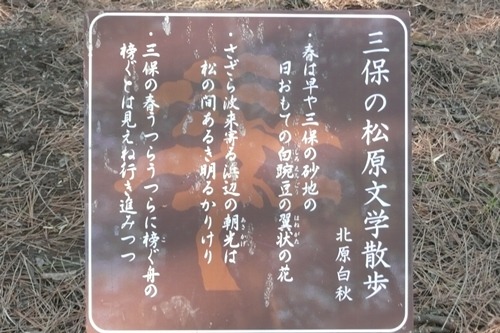 三保の松原文学散歩
北原白秋
・春は早や三保の砂地の
日おもての白豌豆の翼状の花
・さざら波来寄る浜辺の朝光は
松の間あるき明るかりけり
・三保の春うつらうつらに榜ぐ舟の
榜ぐとは見えね行き進みつつ